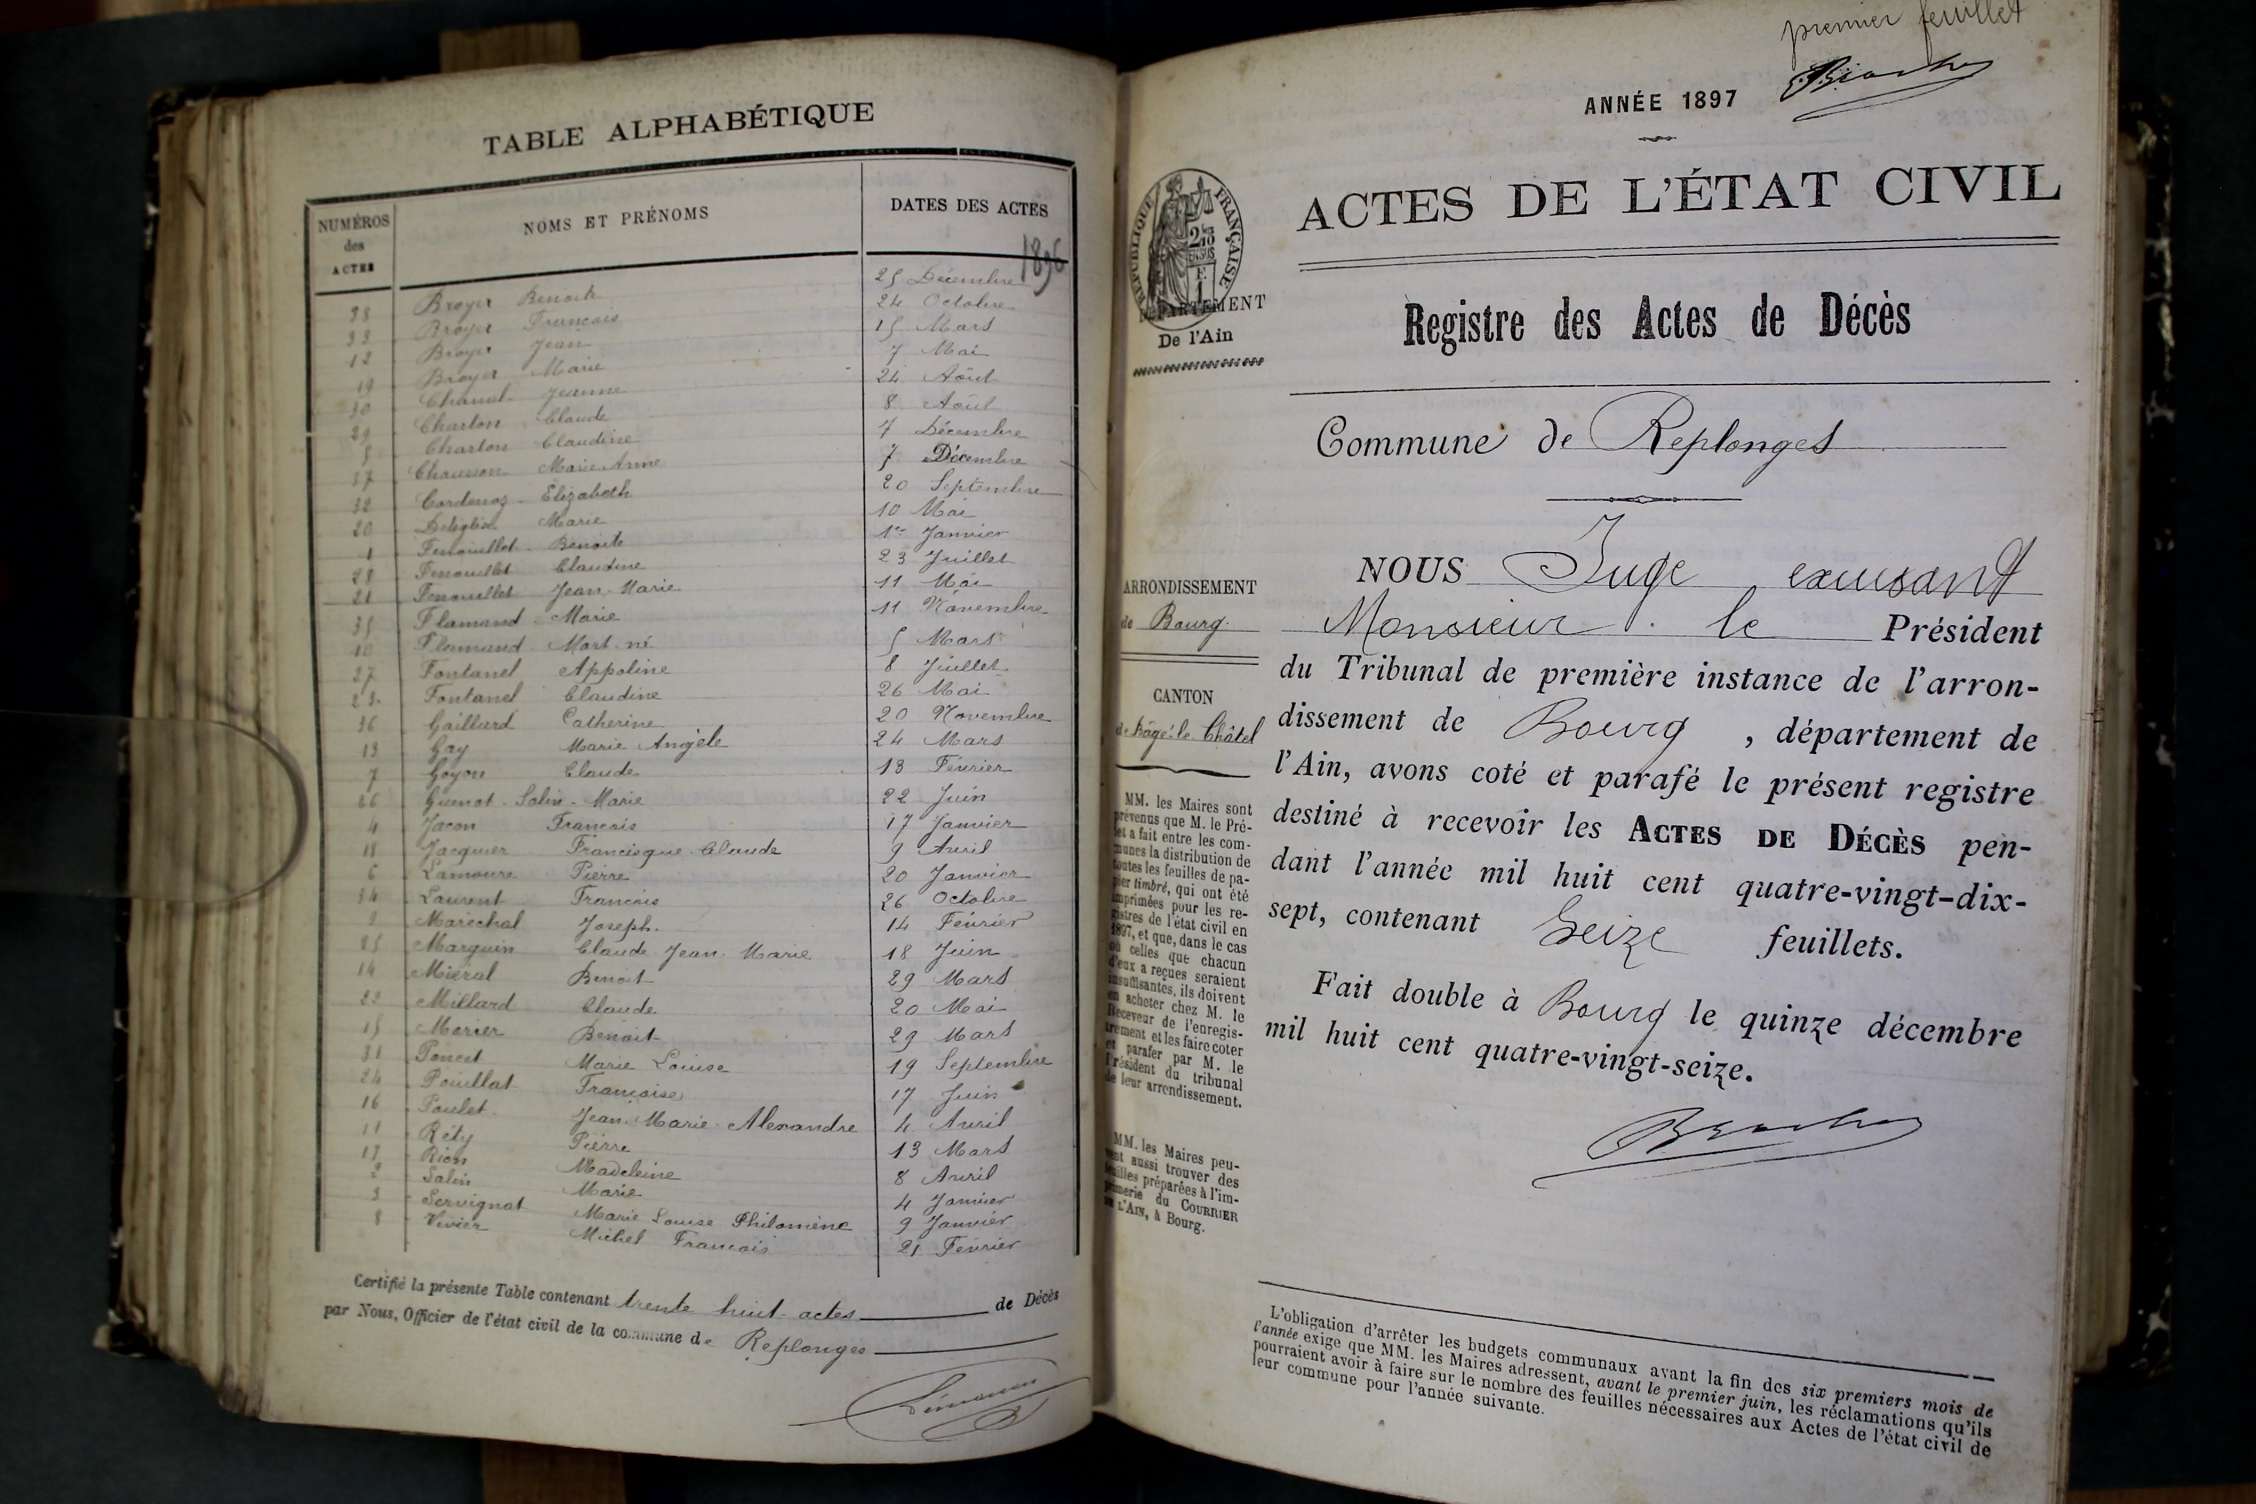 TABLE ALPHABÉTIQUE
NUMÉROS des ACTES
NOMS ET PRÉNOMS
DATES DES ACTES
1896
38 Broyer Benoit 25 Décembre
33 Broyer François 24 Octobre
12 Broyer Jean 15 Mars
19 Broyer Marie 7 Mai
30 Chanut Jeanne 24 Août
29 Charton Claude 8 Août
5 Charton Claudine 7 Décembre
37 Chausson Marie Anne 7 Décembre
32 Elizabeth 20 Septembre
20 Marie 10 Mai
1 Fenouillet Benoite 1er Janvier
28 Fenouillet Claudine 23 Juillet
21 Fenouillet Jean-Marie 11 Mai
35 Flamand Marie 11 Novembre
10 Flamand Mort-né 5 Mars
27 Fontanel Appoline 8 Juillet
23 Fontanel Claudine 26 Mai
36 Gaillard Catherine 20 Novembre
13 Gay Marie Angèle 24 Mars
7 Goyon Claude 13 Février
26 Guenot-Salin-Marie 22 Juin
4 Jacon François 17 Janvier
18 Jacquier Francisque Claude 9 Avril
6 Lamoure Pierre 20 Janvier
34 Laurent François 26 Octobre
9 Maréchal Joseph. 14 Février
25 Marguin Claude Jean Marie 18 Juin
14 Miéral Benoit 29 Mars
22 Millard Claude 20 Mai
15 Mercier Benoit 29 Mars
31 Poncet Marie Louise 19 Septembre
24 Pouillat Françoise 17 Juin
16 Poulet Jean-Marie-Alexandre 4 Avril
11 Réty Pierre 13 Mars
17 Rion Madeleine 8 Avril
2 Salin Marie 4 Janvier
3 Servignat Marie Louise Philomène 9 Janvier
8 Vivier Michel François 21 Février
Certifié la présente Table contenant trente huit actes de Décès
par Nous, Officier de l'état civil de la commune de Replonges
premier feuillet
ANNÉE 1897
ACTES DE L'ÉTAT CIVIL
RÉPUBLIQUE FRANÇAISE
DÉPARTEMENT
De l'Ain
Registre des Actes de Décès
Commune de Replonges
ARRONDISSEMENT
de Bourg
CANTON
de Bâgé-le-Châtel
MM. les Maires sont
prévenus que M. le Pré-
fet a fait entre les com-
munes la distribution de
toutes les feuilles de pa-
pier timbré, qui ont été
imprimées pour les re-
gistres de l'état civil en
1897, et que, dans le cas
où celles que chacun
d'eux a reçues seraient
insuffisantes, ils doivent
en acheter chez M. le
Receveur de l'enregis-
trement et les faire coter
et parafer par M. le
Président du tribunal
de leur arrondissement.
MM. les Maires peu-
vent aussi trouver des
feuilles préparées à l'im-
primerie du COURRIER
DE L'AIN, à Bourg.
NOUS Juge excusant
Monsieur le Président
du Tribunal de première instance de l'arron-
dissement de Bourg, département de
l'Ain, avons coté et parafé le présent registre
destiné à recevoir les ACTES DE DÉCÈS pen-
dant l'année mil huit cent quatre-vingt-dix-
sept, contenant Seize feuillets.
Fait double à Bourg le quinze décembre
mil huit cent quatre-vingt-seize.
L'obligation d'arrêter les budgets communaux avant la fin des six premiers mois de
l'année exige que MM. les Maires adressent, avant le premier juin, les réclamations qu'ils
pourraient avoir à faire sur le nombre des feuilles nécessaires aux Actes de l'état civil de
leur commune pour l'année suivante.